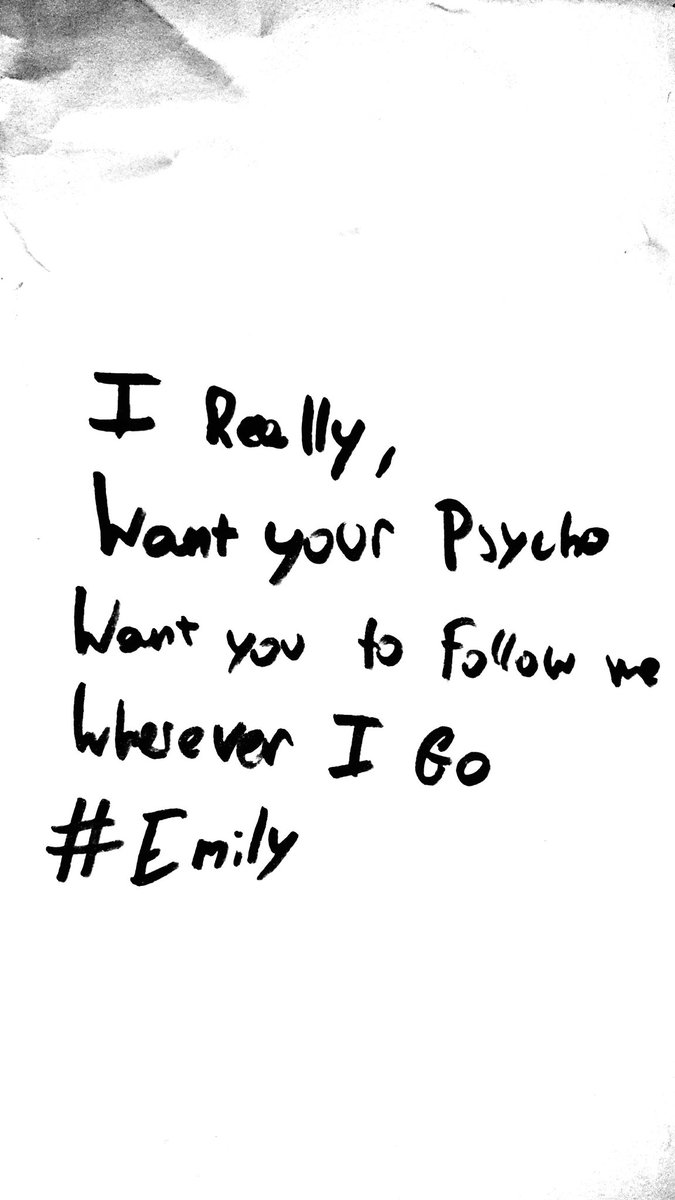 I Really,
Want your Psycho
Want you to Follow me
Wherever I Go
#Emily